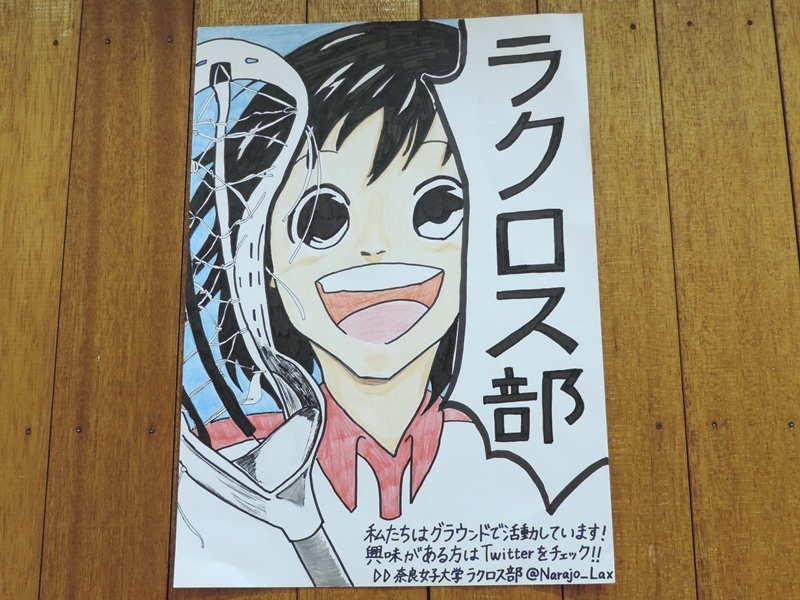 ラクロス部
私たちはグラウンドで活動しています!
興味がある方はTwitterをチェック!!
DD 奈良女子大学 ラクロス部 @Narajo_Lax